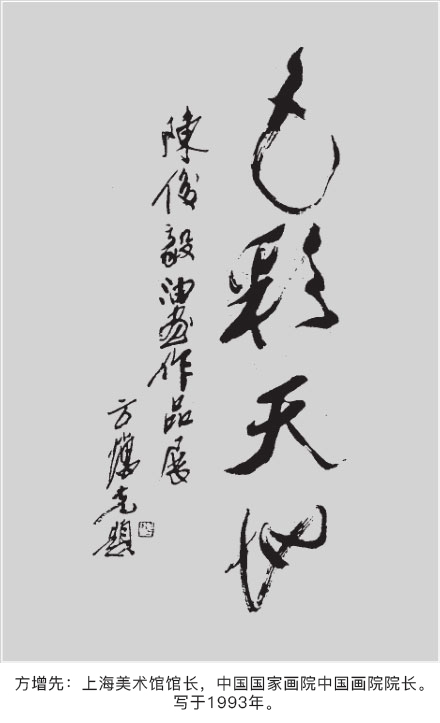 色彩天地
陳俊毅油画作品展
方增先題
方增先：上海美术馆馆长，中国国家画院中国画院院长。
写于1993年。